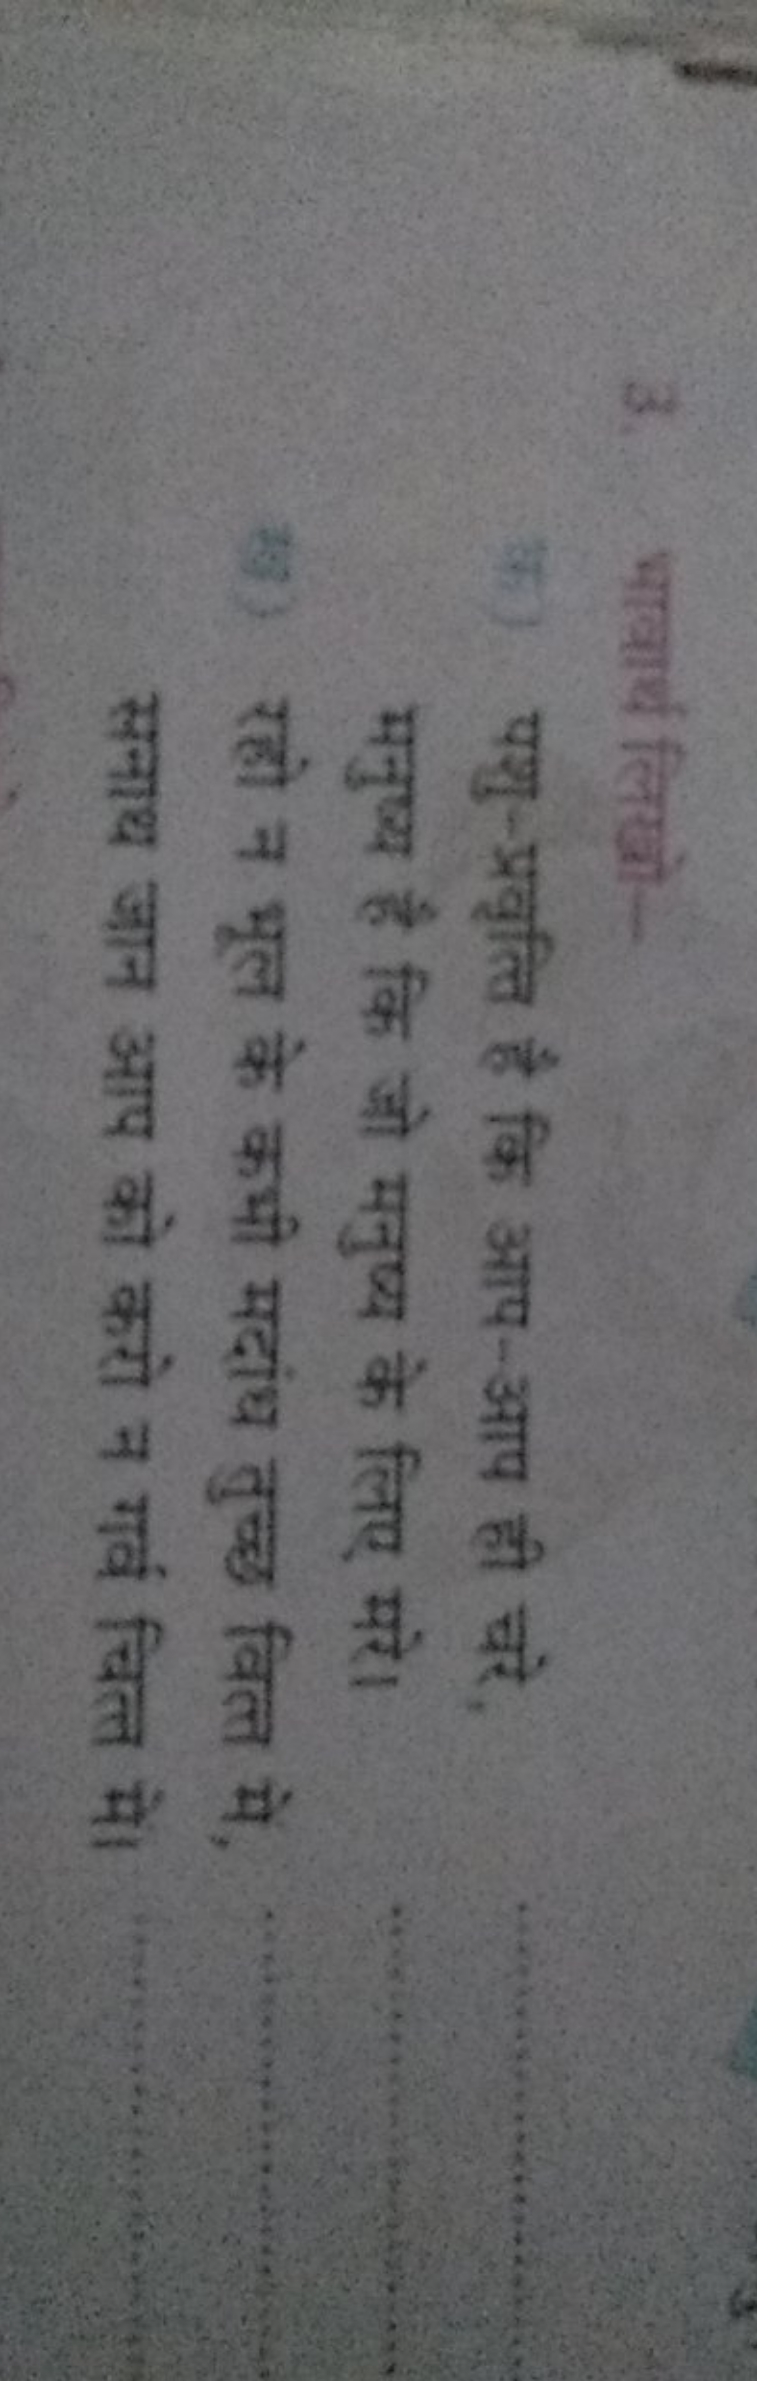 3. भावार्थ लिखो—
क) पशु-प्रवृत्ति है कि आप-आप ही चरे, ........................
मनुष्य है कि जो मनुष्य के लिए मरे। ........................
ख) रहो न भूल के कभी मदांध तुच्छ वित्त में, ........................
सनाथ जान आप को करो न गर्व चित्त में। ........................